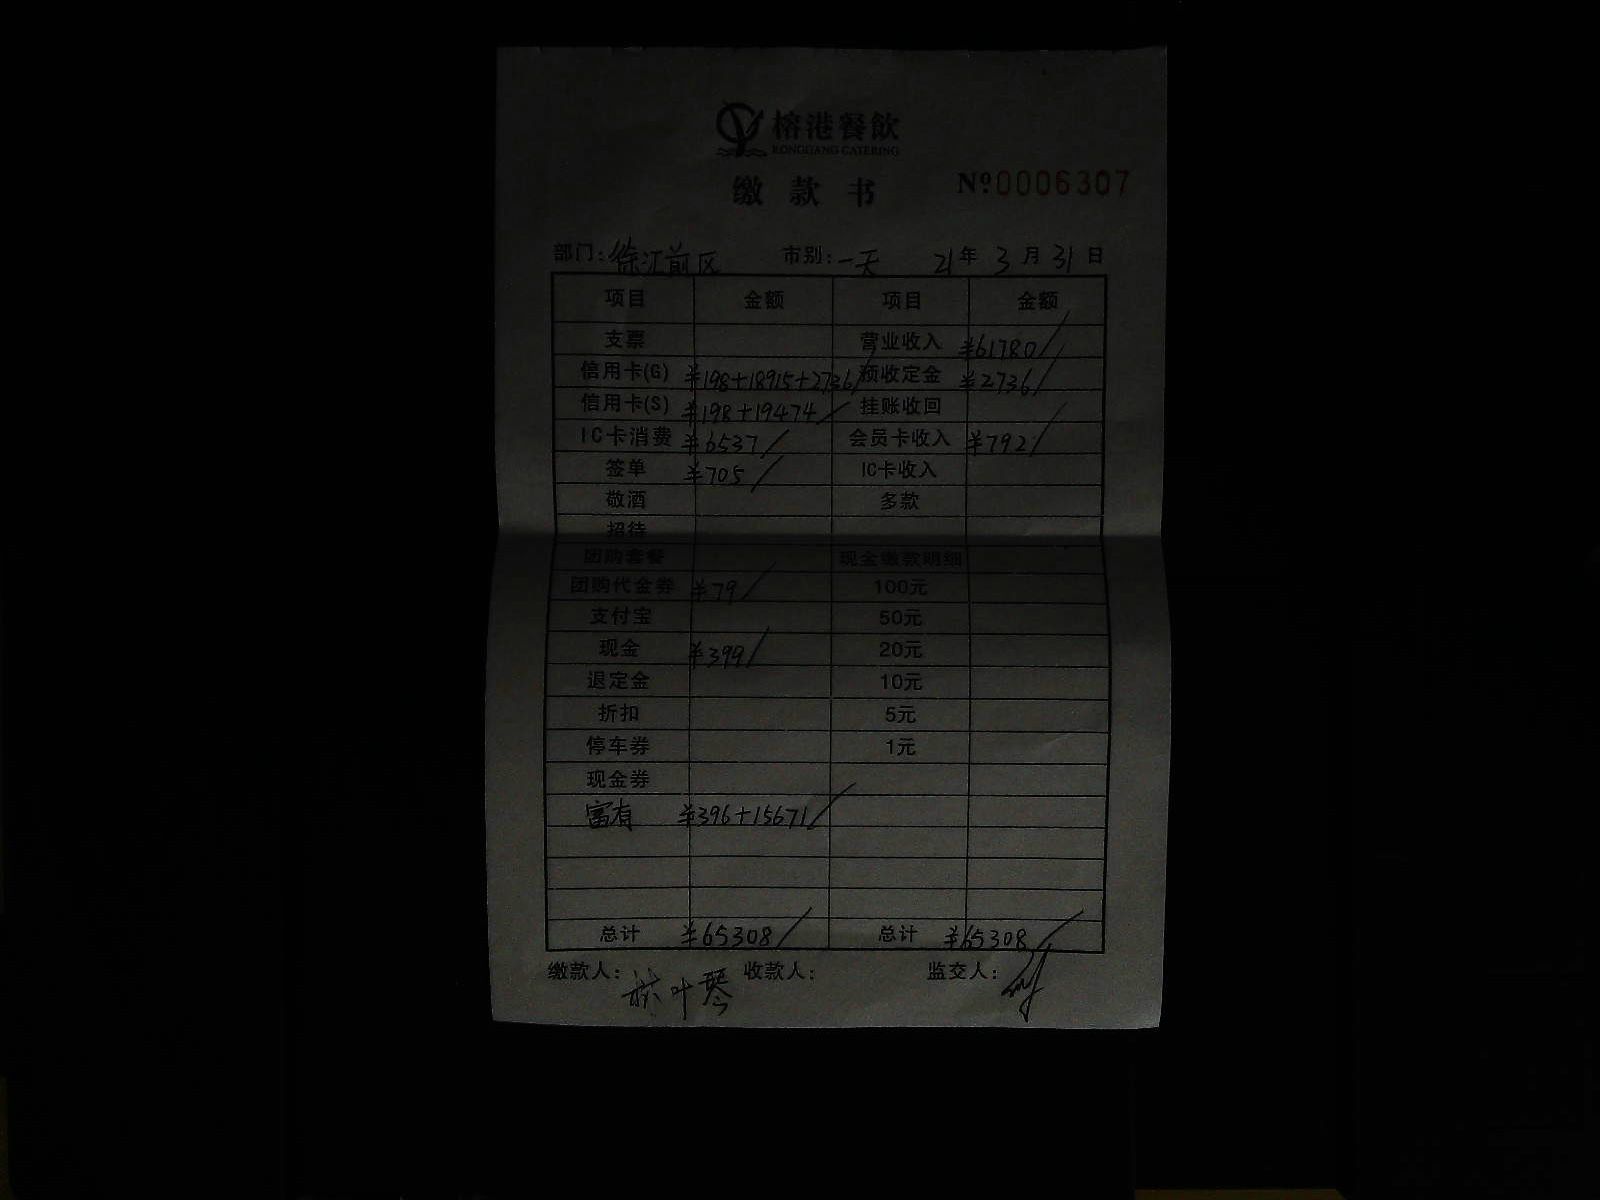 榕港餐飲
RONGGANG CATERING
缴款书
№0006307
部门:徐汇前区 市别:一天 21年3月31日
项目 金额 项目 金额
支票 营业收入 ¥61780
信用卡(G) ¥198+18915+2736 预收定金 ¥2736
信用卡(S) ¥198+19474 挂账收回
IC卡消费 ¥6537 会员卡收入 ¥792
签单 ¥705 IC卡收入
敬酒 多款
招待
团购套餐 现金缴款明细
团购代金券 ¥79 100元
支付宝 50元
现金 ¥399 20元
退定金 10元
折扣 5元
停车券 1元
现金券
富有 ¥396+15671
总计 ¥65308 总计 ¥65308
缴款人: 叶琴 收款人: 监交人: